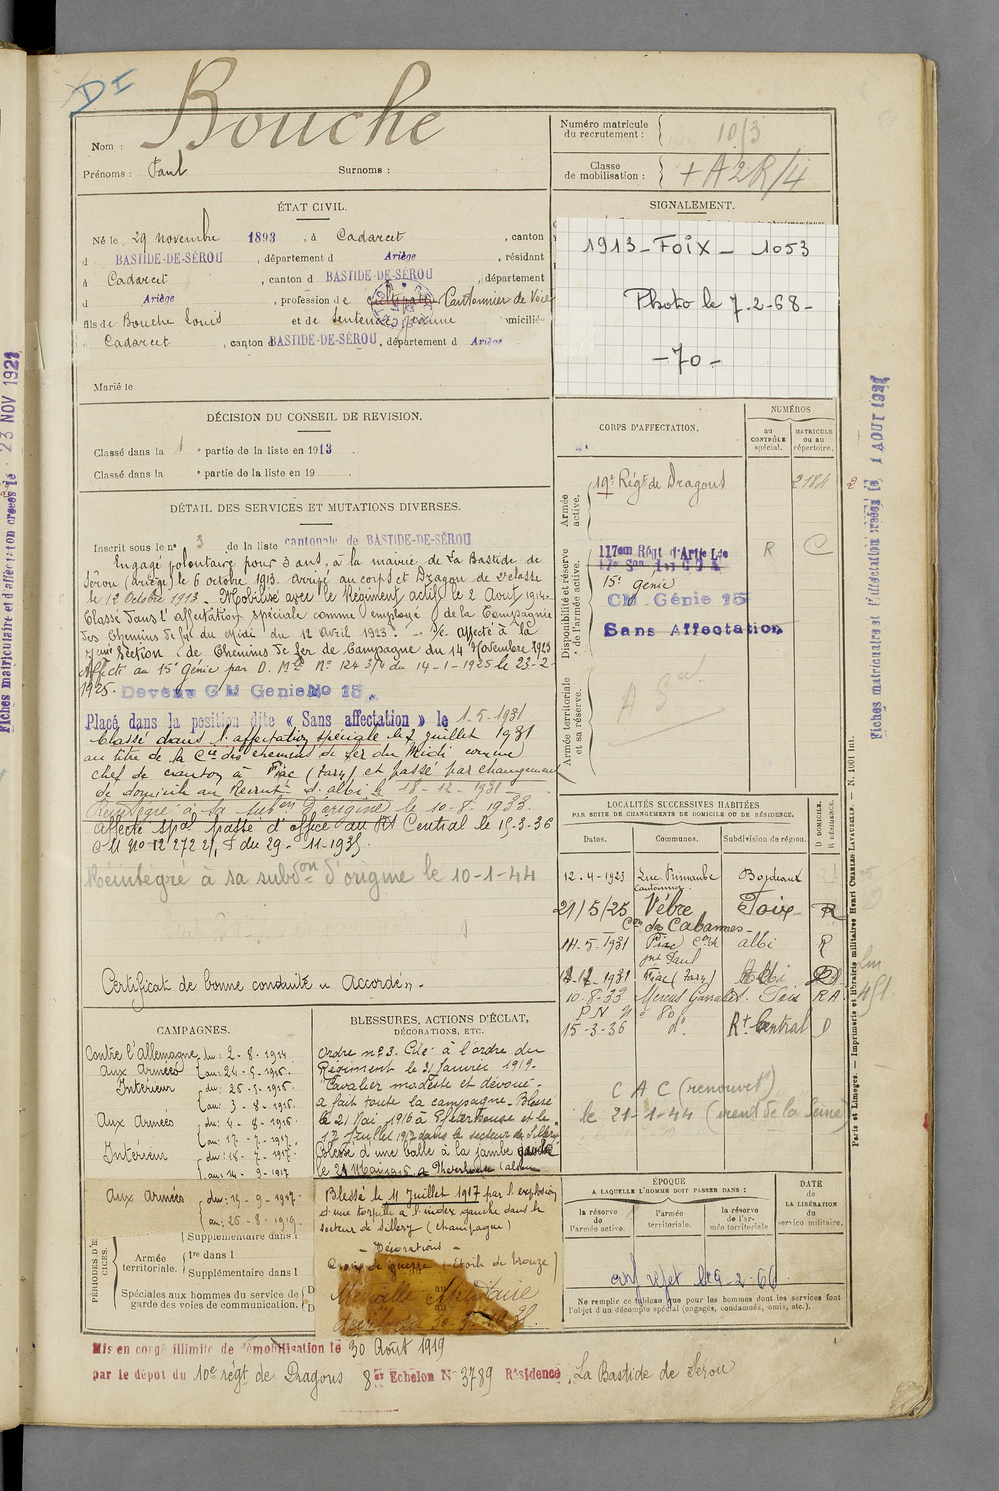 DI
Nom : Bouche
Prénoms : Paul Surnoms :
Numéro matricule
du recrutement :
Classe
de mobilisation : + A 2 R/4
ÉTAT CIVIL.
Né le 29 novembre 1893, à Cadarcet, canton
d BASTIDE-DE-SÉROU, département d Ariège, résidant
à Cadarcet, canton d BASTIDE-DE-SÉROU, département
d Ariège, profession de cultivateur Cantonnier de Voie
fils de Bouche Louis et de Jeanne domicilié
Cadarcet, canton BASTIDE-DE-SÉROU, département d Ariège
Marié le
SIGNALEMENT.
1913 - FOIX - 1053
Photo le 7-2-68-
- 70 -
DÉCISION DU CONSEIL DE REVISION.
Classé dans la 1e partie de la liste en 1913.
Classé dans la e partie de la liste en 19 .
DÉTAIL DES SERVICES ET MUTATIONS DIVERSES.
Inscrit sous le n° 3 de la liste cantonale de BASTIDE-DE-SÉROU
Engagé volontaire pour 3 ans, à la mairie de La Bastide de
Sérou (Ariège) le 6 octobre 1913. Arrivé au corps et Dragon de 2e classe
le 12 Octobre 1913. Mobilisé avec le Régiment actif le 2 Aout 1914.
Classé dans l'affectation spéciale comme employé de la Compagnie
des Chemins de fer du Midi du 12 Avril 1923. affecté à la
7eme Section de Chemins de fer de Campagne du 14 Novembre 1923
Affecté au 15e Génie par D. Mlle N° 124 3/4 du 14-1-1925 le 23-2-
1925. Devenu C M Genie No 15.
Placé dans la position dite « Sans affectation » le 1.5.1931
Classé dans l'affectation spéciale le 2 juillet 1931
au titre de la Cie des chemins de fer du Midi comme
chef de canton à Fiac (Tarn) et passé par changement
de domicile au Recrutt d'albi le 18-12-1931
Réintégré à sa subon d'origine le 10-8-1933.
Affecté spal passé d'office au Rt Central le 15-3-36
du 29-11-1935.
Réintégré à sa subdon d'origine le 10-1-44
Certificat de bonne conduite « Accordé ».
CORPS D'AFFECTATION.
NUMÉROS
au
CONTRÔLE
spécial.
MATRICULE
ou au
répertoire.
Armée
active.
19e Régt de Dragons 2184
Disponibilité et réserve
de l'armée active.
117eme Régt d'Artie Lde R C
15e génie
CM Génie 15
Sans Affectation
Armée territoriale
et sa réserve.
LOCALITÉS SUCCESSIVES HABITÉES
PAR SUITE DE CHANGEMENTS DE DOMICILE OU DE RÉSIDENCE.
Dates. Communes. Subdivision de région. D DOMICILE. R RÉSIDENCE.
12-4-1923 Bordeaux
cantonnier
21/5/25 Vèbre Foix R
Con des Cabannes
11-5-1931 Fiac Con de albi R
St Paul
18-12-1931 Fiac (Tarn) Albi D
10-8-33 Mercus Garrabet Foix R A
P N n° 80
15-3-36 d° Rt Central D
C A C (renouvet)
le 21-1-44 (vient de la Seine)
CAMPAGNES.
Contre l'Allemagne du : 2-8-1914
Aux Armées au : 24-5-1916
Intérieur du : 25-5-1916
au : 3-8-1916
Aux Armées du : 4-8-1916
au : 17-7-1917
Intérieur du : 18-7-1917
au : 14-9-1917
Aux Armées du : 15-9-1917
au : 25-8-1919
Supplémentaire dans l
PÉRIODES D'EXERCICES.
Armée
territoriale.
1re dans l
Supplémentaire dans l
Spéciales aux hommes du service de
garde des voies de communication.
BLESSURES, ACTIONS D'ÉCLAT,
DÉCORATIONS, ETC.
Ordre n° 3. Cité à l'ordre du
Régiment le 31 Janvier 1919.
"Cavalier modeste et dévoué.
a fait toute la campagne. Blessé
le 21 Mai 1916 à et le
17 Juillet 1917 dans le secteur de Sillery
Blessé d'une balle à la jambe gauche
le 21 Mai 1916 a
Blessé le 11 Juillet 1917 par l'explosion
d'une torpille à l'index gauche dans le
secteur de Sillery (Champagne)
- Décorations -
Croix de guerre (Etoile de bronze)
Médaille Militaire
ÉPOQUE
A LAQUELLE L'HOMME DOIT PASSER DANS :
la réserve
de l'armée active.
l'armée
territoriale.
la réserve
de l'armée territoriale
DATE
de
LA LIBÉRATION
du
service militaire.
Ne remplir ce tableau que pour les hommes dont les services font
l'objet d'un décompte spécial (engagés, condamnés, omis, etc.).
Mis en congé illimité de démobilisation le 30 Août 1919
par le dépot du 10e régt de Dragons 8er Echelon N° 3789 Résidence La Bastide de Sérou
Fiches matriculaire et d'affectation créées le 23 NOV 1921
Fiches matriculaire et d'affectation créées le 1 AOUT 1921
Paris et Limoges. — Imprimerie et librairie militaires Henri CHARLES-LAVAUZELLE. — N. 1001 Int.